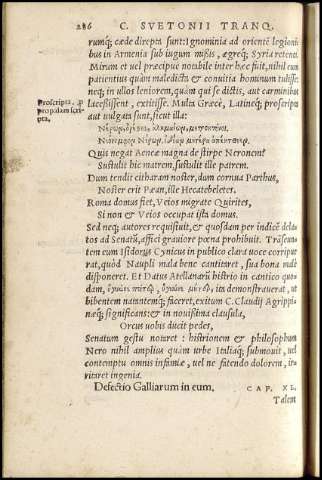 286 C. SVETONII TRANQ.
rumq́; cæde direpta sunt: Ignominia ad orientē legionibus
bus in Armenia sub iugum missis, ægreq́; Syria retenta.
Mirum et uel præcipue notabile inter hæc fuit, nihil eum
patientius quàm maledicta & conuitia hominum tulisse:
neq́; in ullos leniorem, quàm qui se dictis, aut carminibus
Proscripta, propalam scripta.
lacessissent, extitisse. Multa Græcè, Latineq́; proscripta
aut uulgata sunt, sicut illa:
Νέρων, ὀρέστης, ἀλκμαίων, μητροκτόνοι.
Quis negat Aeneæ magna de stirpe Neronem?
Sustulit hic matrem, sustulit ille patrem.
Dum tendit citharam noster, dum cornua Parthus,
Noster erit Pæan, ille Hecatebeletes.
Roma domus fiet, Veios migrate Quirites,
Si non & Veios occupat ista domus.
Sed neq́; autores requisiuit, & quosdam per indicē delatos
ad Senatū, affici grauiore pœna prohibuit. Transeuntem
eum Isidorus Cynicus in publico clara uoce corripuerat,
quòd Naupli mala bene cantitaret, sua bona malè
disponeret. Et Datus Atellanarū histrio in cantico quodam,
ὑγίαινε πάτερ, ὑγίαινε μῆτερ, ita demonstrauerat, ut
bibentem natantemq́; faceret, exitum C. Claudij Agrippinæq́;
significans: & in nouissima clausula,
Orcus uobis ducit pedes,
Senatum gestu notaret: histrionem & philosophum
Nero nihil amplius quàm urbe Italiaq́; submouit, uel
contemptu omnis infamiæ, uel ne fatendo dolorem, irritaret
ingenia.
Defectio Galliarum in eum. CAP. XL.
Talem